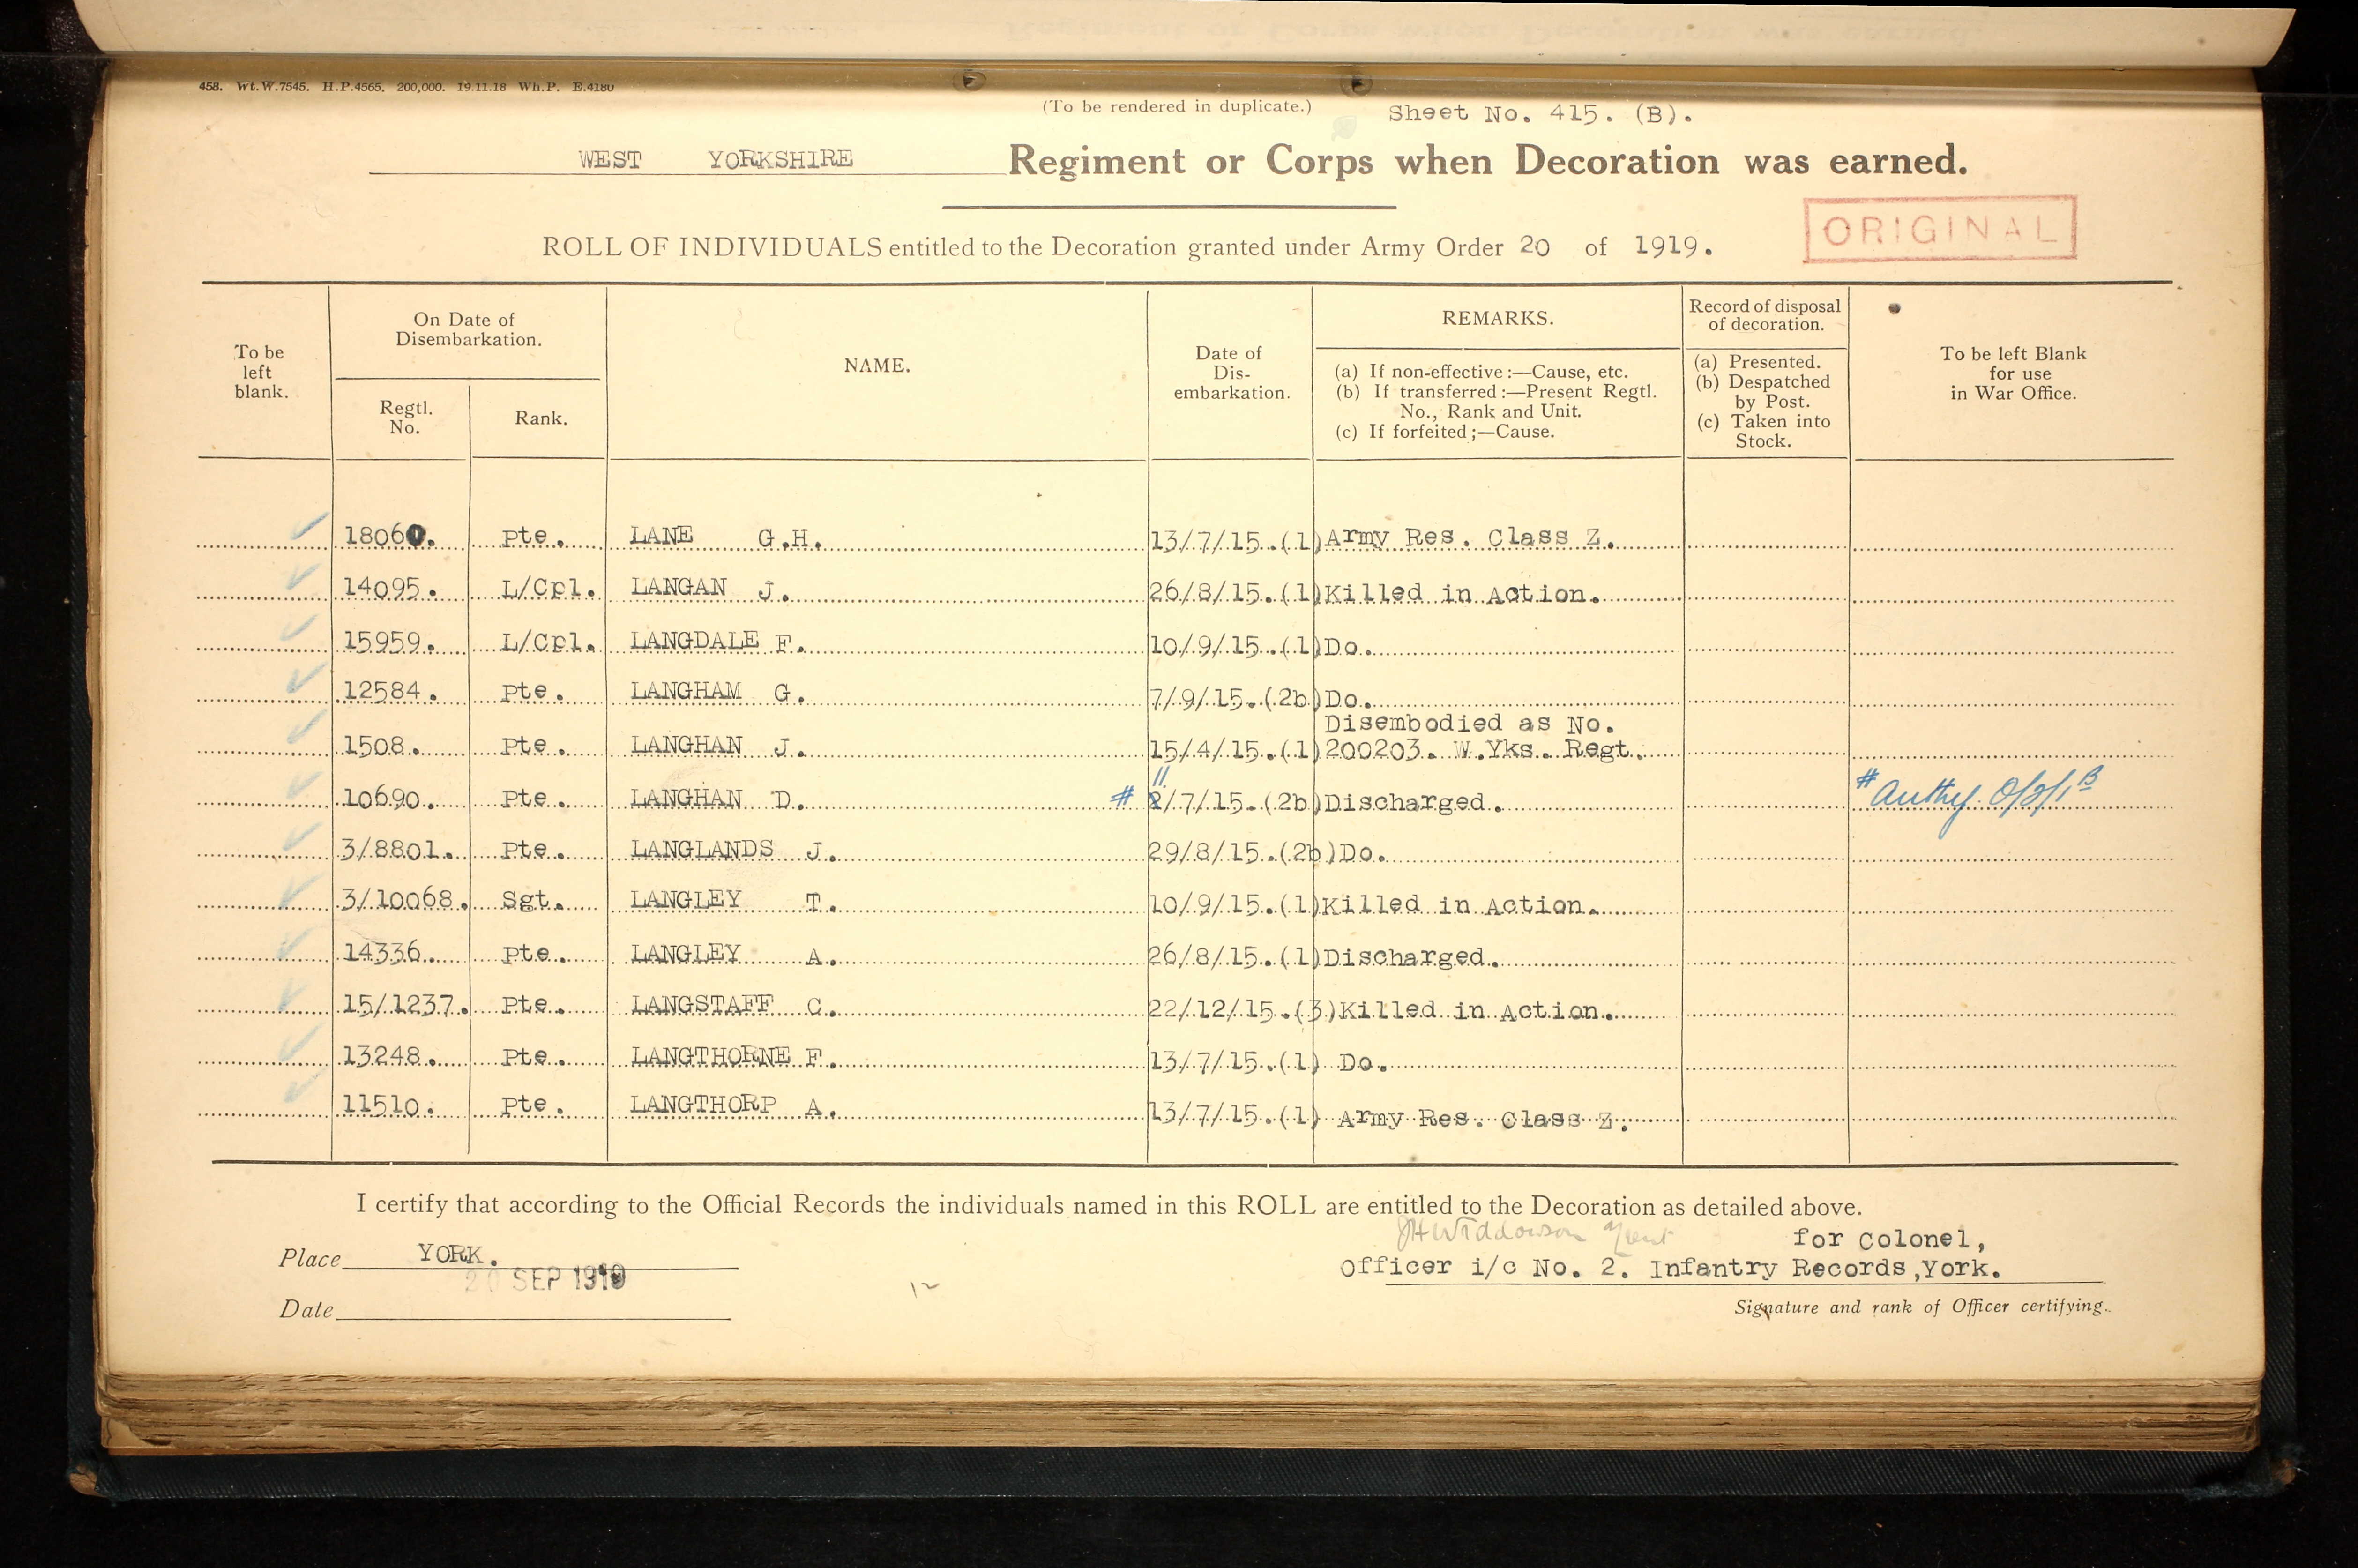 458. Wt.W.7545. H.P.4565. 200,000. 19.11.18 Wh.P. E.4180
(To be rendered in duplicate.) Sheet No. 415. (B).
WEST YORKSHIRE Regiment or Corps when Decoration was earned.
ROLL OF INDIVIDUALS entitled to the Decoration granted under Army Order 20 of 1919.
ORIGINAL
To be left blank.
On Date of Disembarkation.
Regtl. No.
Rank.
NAME.
Date of Dis- embarkation.
REMARKS.
(a) If non-effective:—Cause, etc.
(b) If transferred:—Present Regtl. No., Rank and Unit.
(c) If forfeited;—Cause.
Record of disposal of decoration.
(a) Presented.
(b) Despatched by Post.
(c) Taken into Stock.
To be left Blank for use in War Office.
18060. Pte. LANE G.H. 13/7/15.(1) Army Res. Class Z.
14095. L/Cpl. LANGAN J. 26/8/15.(1) Killed in Action.
15959. L/Cpl. LANGDALE F. 10/9/15.(1) Do.
12584. Pte. LANGHAM G. 7/9/15.(2b) Do.
1508. Pte. LANGHAN J. 15/4/15.(1) Disembodied as No. 200203. W.Yks. Regt.
10690. Pte. LANGHAN D. # 11 /7/15.(2b) Discharged. # Authy.
3/8801. Pte. LANGLANDS J. 29/8/15.(2b) Do.
3/10068. Sgt. LANGLEY T. 10/9/15.(1) Killed in Action.
14336. Pte. LANGLEY A. 26/8/15.(1) Discharged.
15/1237. Pte. LANGSTAFF C. 22/12/15.(3) Killed in Action.
13248. Pte. LANGTHORNE F. 13/7/15.(1) Do.
11510. Pte. LANGTHORP A. 13/7/15.(1) Army Res. Class Z.
I certify that according to the Official Records the individuals named in this ROLL are entitled to the Decoration as detailed above.
JHWiddowson for Colonel,
Place YORK.
Officer i/c No. 2. Infantry Records,York.
20 SEP 1919
Date
Signature and rank of Officer certifying.
12